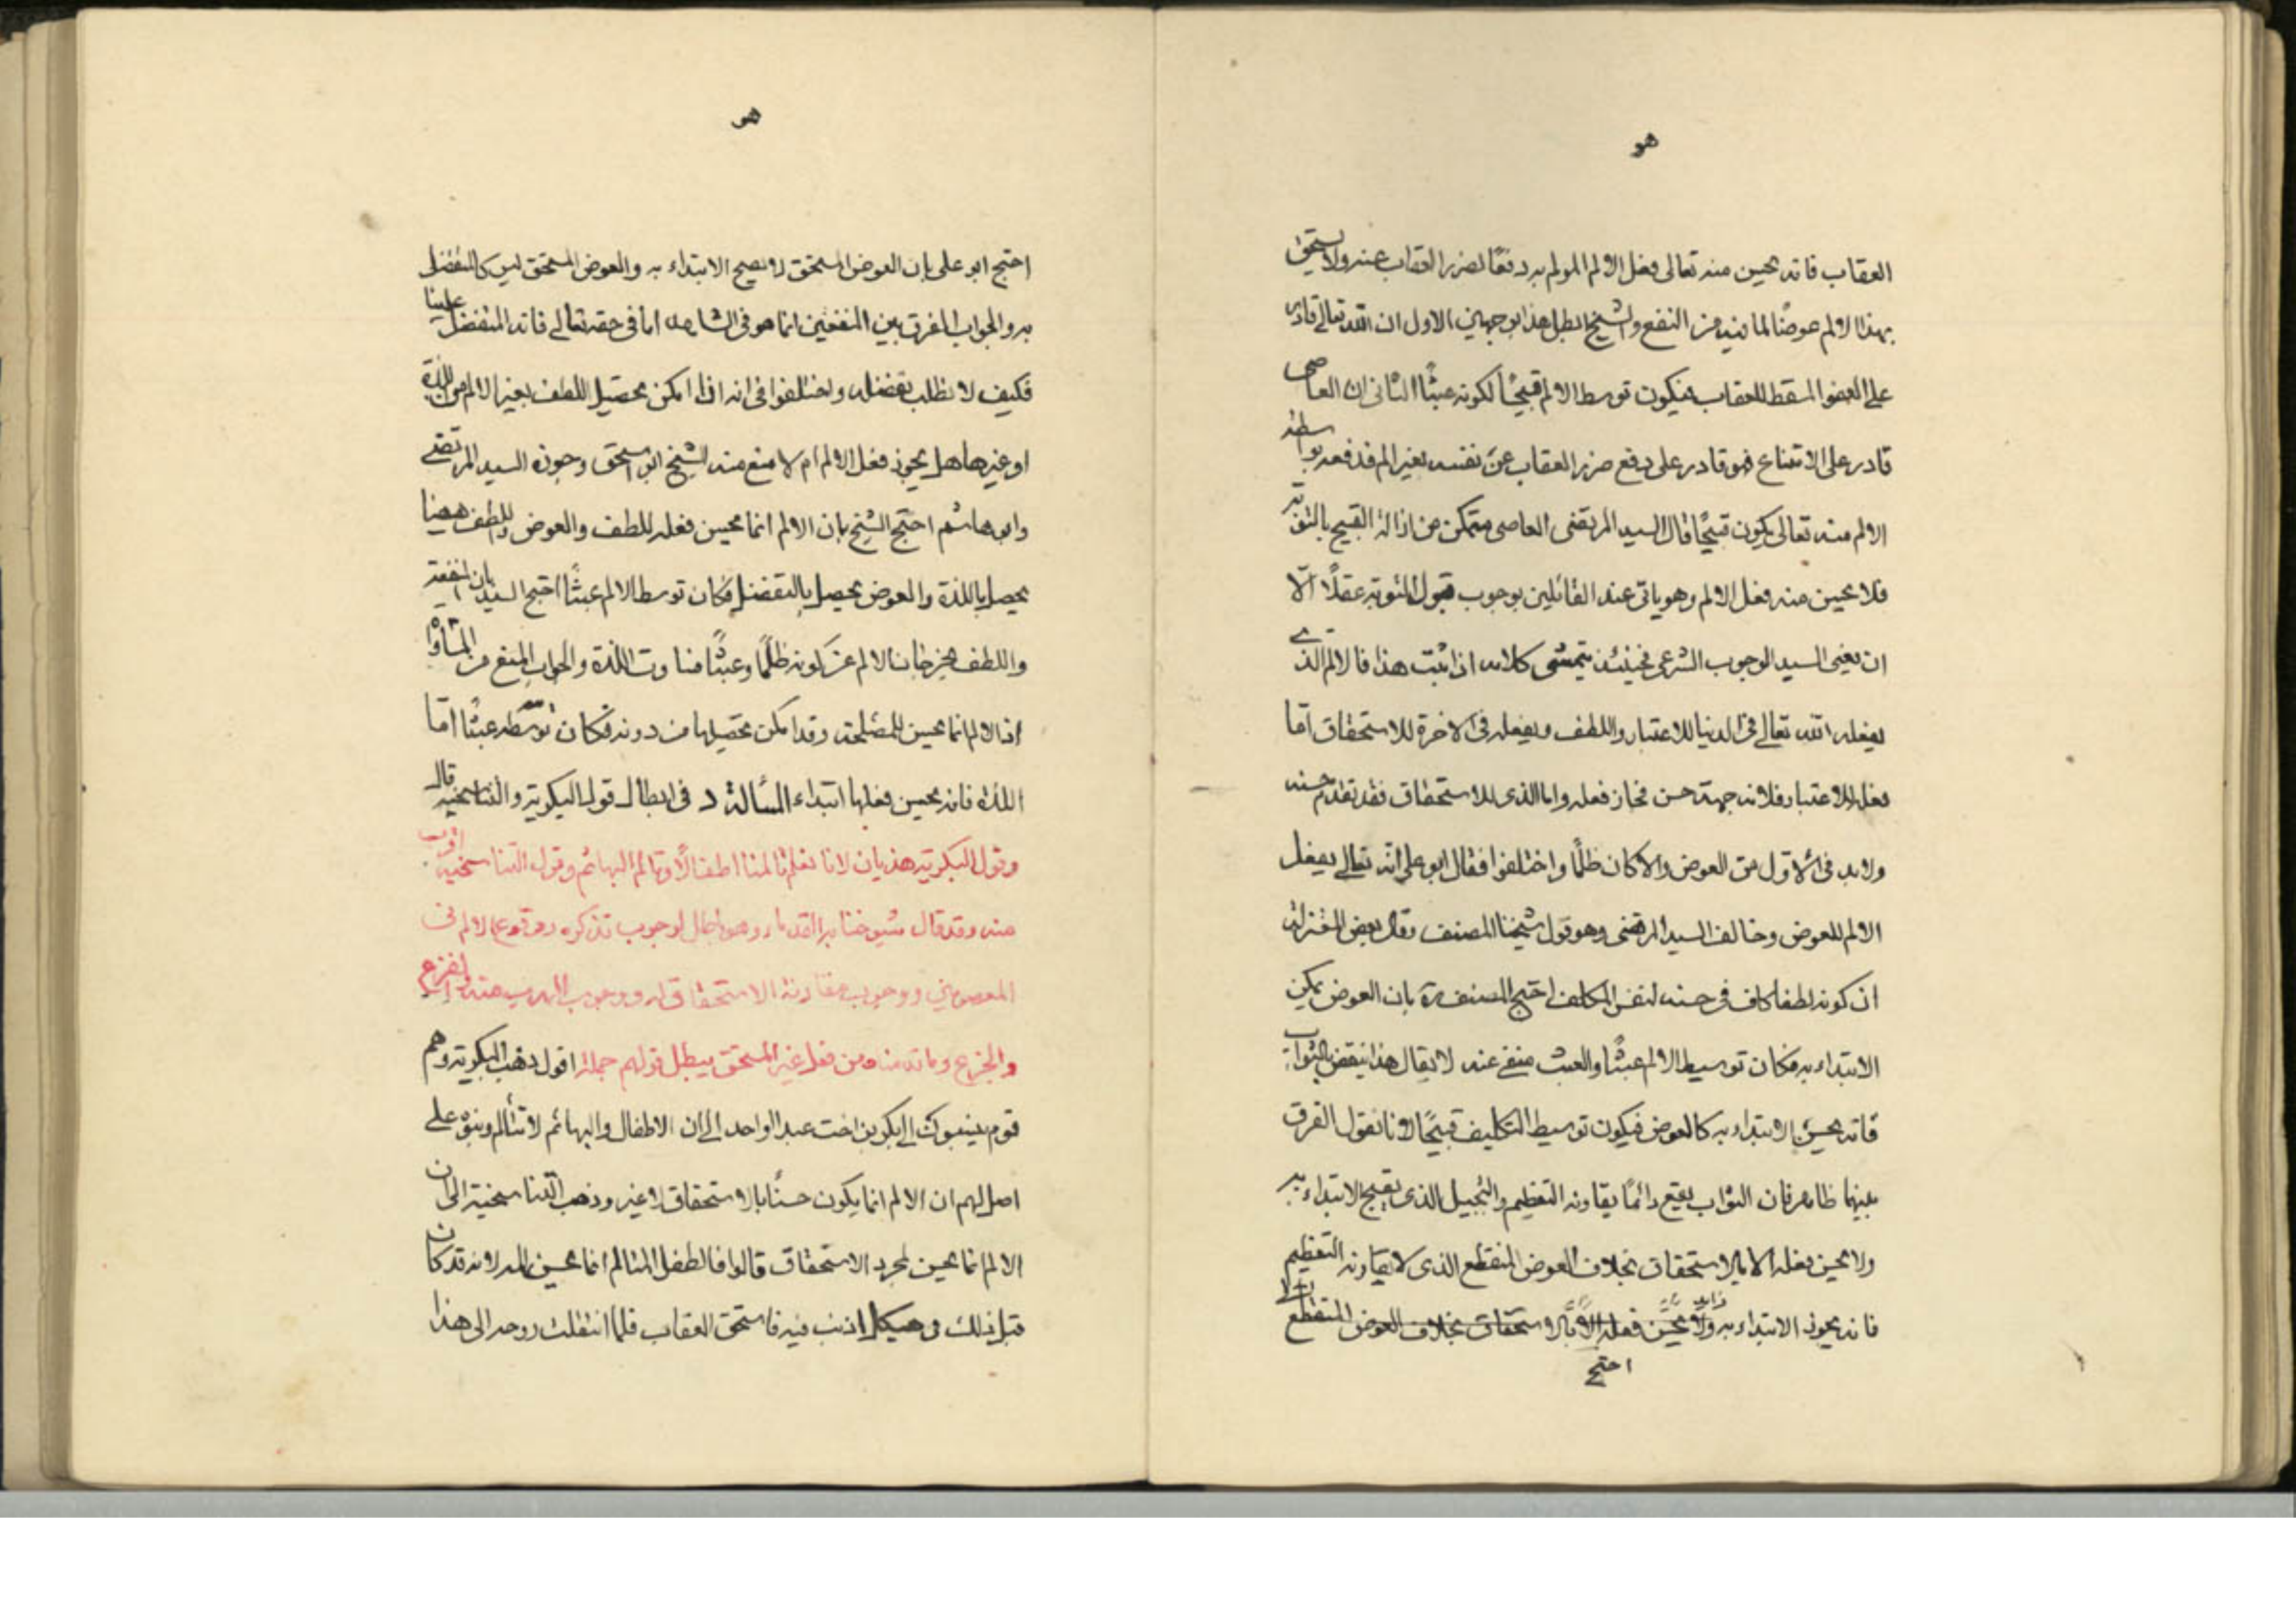 هو
العقاب فانه يحسن منه تعالى فعل الالم المولم به دفعًا لضرر العقاب عنه ولا يستحق
بهذا الالم عوضًا لما فيه من النفع والشيخ ابطل هذا بوجهين الاول ان الله تعالى قادر
على العفو المسقط للعقاب فيكون توسط الالم قبيحًا لكونه عبثًا الثانى ان العاصى
قادر على الامتناع فهو قادر على دفع ضرر العقاب عن نفسه بغير الم فدفعه بواسطة
الالم منه تعالى يكون قبيحًا قال السيد المرتضى العاصى متمكن من ازالة القبيح بالتوبة
فلا يحسن منه فعل الالم وهو ياتى عند القائلين بوجوب قبول التوبة عقلًا الّا
ان يعنى السيد الوجوب الشرعى فحينئذ يتمشى كلامه اذا ثبت هذا فالالم الذى
يفعله الله تعالى فى الدنيا للاعتبار واللطف ويفعله فى الاخرة للاستحقاق امّا
فعله للاعتبار فلانه جهة حسن فجاز فعله واما الذى للاستحقاق فقد تقدم حسنه
ولابد فى الاوّل من العوض والا كان ظلمًا واختلفوا فقال ابو على انه تعالى يفعل
الالم للعوض وخالف السيد المرتضى وهو قول شيخنا المصنف وقال بعض المعتزلة
ان كونه لطفا كاف فى حسنه لنفس المكلف احتج المصنف ره بان العوض يمكن
الابتداء به فكان توسيط الالم عبثًا والعبث منفى عنه لا يقال هذا ينقض بالثواب
فانه يحسن الابتداء به كالعوض فيكون توسيط التكليف قبيحًا لانا نقول الفرق
بينهما ظاهر فان الثواب يقع دائمًا يقارنه التعظيم والتبجيل الذى يقبح الابتداء به
ولا يحسن فعله الا بالاستحقاق بخلاف العوض المنقطع الذى لا يقارنه التعظيم
فانه يجوز الابتداء به ولا يحسن فعله الا بالاستحقاق بخلاف العوض المنقطع
احتج
هو
احتج ابو على بان العوض المستحق لا يصح الابتداء به والعوض المستحق ليس كالتفضل
به والجواب الفرق بين النفعين انما هو فى الشاهد اما فى حقه تعالى فانه المتفضل علينا
فكيف لا نطلب تفضله واختلفوا فى انه اذا امكن تحصيل اللطف بغير الالم من اللذة
او غيرها هل يجوز فعل الالم ام لا منع منه الشيخ ابو اسحق وجوزه السيد المرتضى
وابو هاشم احتج الشيخ بان الالم انما يحسن فعله للطف والعوض واللطف هيهنا
يحصل باللذة والعوض يحصل بالتفضل فكان توسط الالم عبثًا احتج السيد بان المنفعة
واللطف يخرجان الالم عن كونه ظلمًا وعبثًا فساوت اللذة والجواب المنع من المساواة
اذ الالم انما يحسن للمصلحة وقد امكن تحصيلها من دونه فكان توسطه عبثًا امّا
اللذة فانه يحسن فعلها ابتداء المسألة د فى ابطال قول البكرية والتناسخية قال
وقول البكرية هذيان لانا نعلم تالمنا اطفالًا وتالم البهائم وقول التناسخية اقرب
منه وقد قال شيوخنا بر القدماء وهو باطل لوجوب تذكره ووقوع الالم فى
المعصومين ووجوب مقارنة الاستحقاق له ووجوب الهرب منه والفزع
والجزع وما قدمناه من فعل غير المستحق يبطل قولهم جملة اقول ذهب البكرية وهم
قوم ينسبون الى بكر بن اخت عبد الواحد الى ان الاطفال والبهائم لا تتألم وبنوه على
اصل لهم ان الالم انما يكون حسنًا بالاستحقاق لا غير وذهب التناسخية الى ان
الالم انما يحسن لمجرد الاستحقاق قالوا فالطفل المتالم انما يحسن المه لانه قد كان
قبل ذلك فى هيكل اذنب فيه فاستحق العقاب فلما انتقلت روحه الى هذا